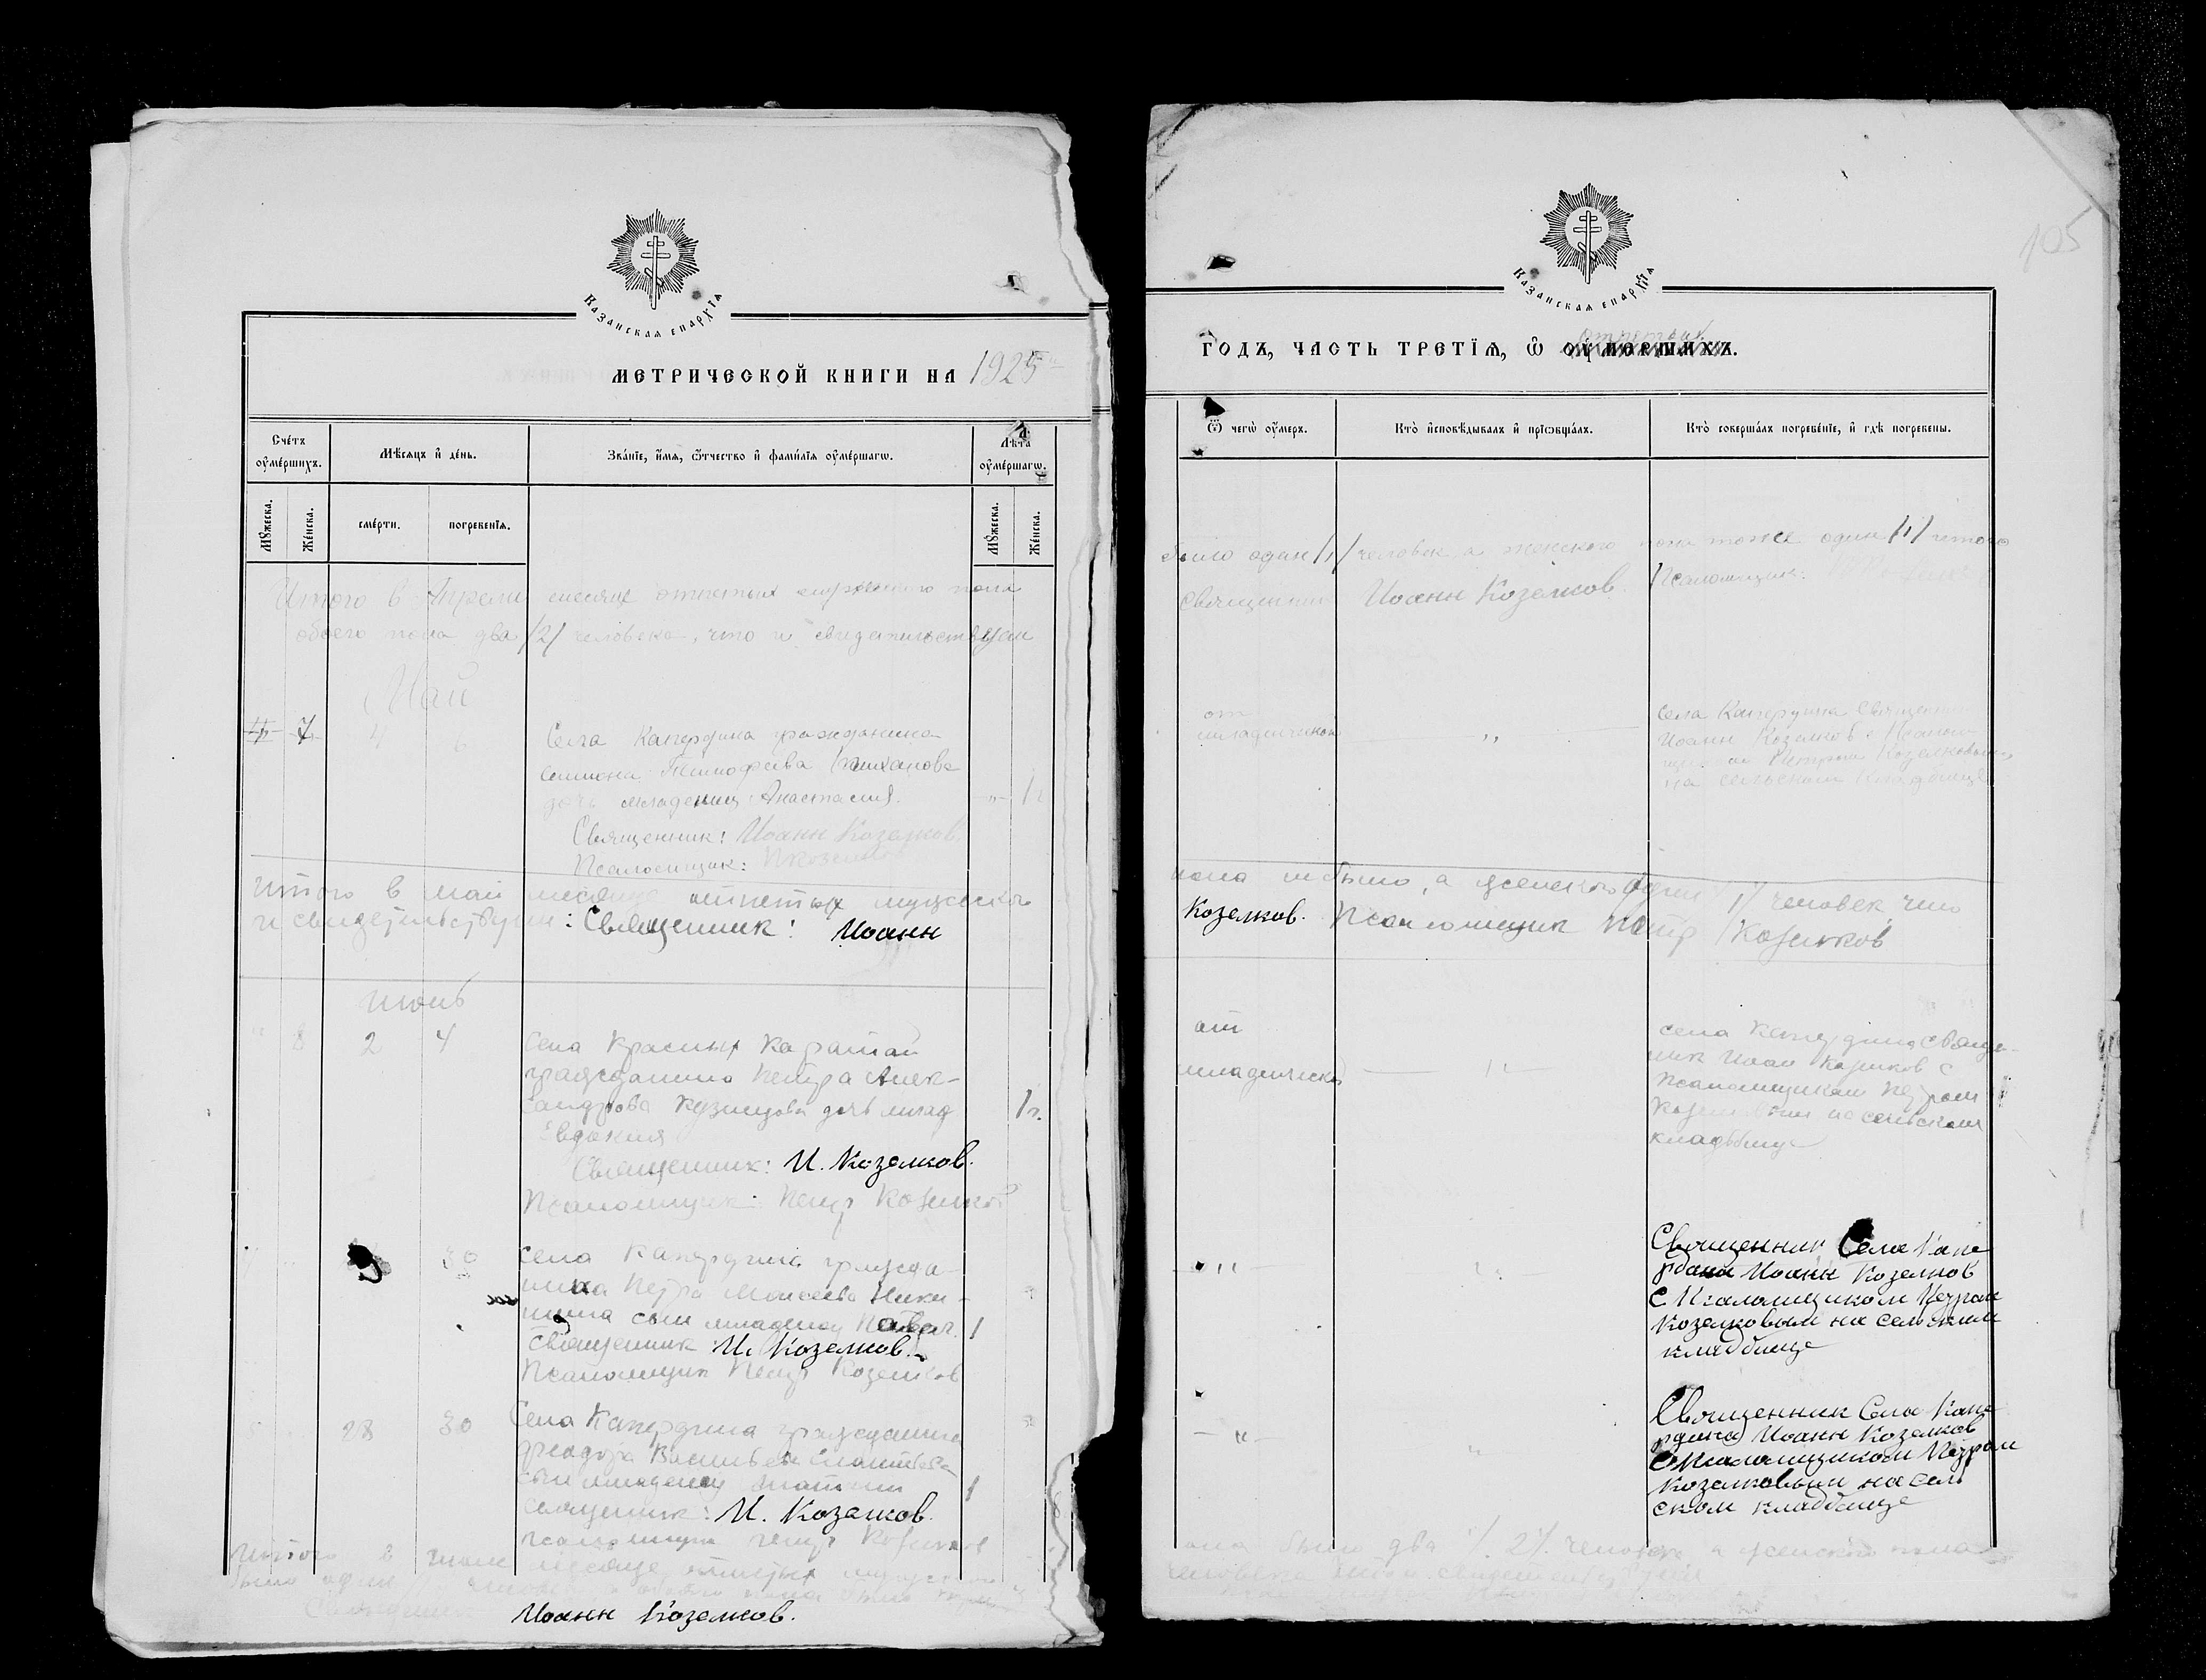 Казанская епархїѧ
МЕТРИЧЕСКОЙ КНИГИ НА 1925
Счéтъ ᲂу҆мéршихъ.
Мѣ́сѧцъ и҆ дéнь.
Звáнїе, и҆́мѧ, ѻ҆́тчество и҆ фамѝлїѧ ᲂу҆мéршагѡ.
Лѣ́та ᲂу҆мéршагѡ.
Мꙋ́жеска.
Жéнска.
смéрти.
погребенїѧ.
Мꙋ́жеска.
Жéнска.
Итого в Апреле месяце отпетых мужского пола
обоего пола два /2/ человека, что и свидетельствуем
Май
7 4 6
Села Капердина гражданина
Симиона Тимофеева
дочь младенец Анастасия. " 1
Священник: Иоанн Козелков.
Псаломщик: ПКозелков
Итого в май месяце отпетых мужского
и свидетельствуем: Священник: Иоанн
Июнь
" 8 2 4
Села Красных Каратай
гражданина Петра Алек-
сандрова Кузнецова дочь млад
Евдокия 1 г.
Священник: И. Козелков.
Псаломщик: Петр Козелков
30
Села Капердина гражда-
нина Петра Моисеева Ники-
тина сын младенец Павел. 1
Священник И. Козелков.
Псаломщик Петр Козелков
28 30
Села Капердина гражданина
Феодора Васильева
сын младенец 1
Священник: И. Козелков.
псаломщик Петр Козелков
Итого в июне месяце отпетых мужского
Иоанн Козелков.
105
Казанская епархїѧ
ГОДЪ, ЧАСТЬ ТРЕТЇѦ, Ѡ҆ ОУМЕРШИХЪ.
отпетых
Ѿ чегѡ̀ ᲂу҆́меръ.
Ктò и҆сповѣ́дывалъ и҆ прїѡбщáлъ.
Ктò совершáлъ погребéнїе, и҆ гдѣ̀ погребены.
было один /1/ человек а женского пола тоже один /1/ итого
Священник Иоанн Козелков. Псаломщик:
от
младенческой
"
Села Капердина Священник
Иоанн Козелков с Псалом-
щиком Петром Козелковым
на сельском кладбище
пола не было, а женского один /1/ человек, что
Козелков. Псаломщик Петр Козелков
от
младенческой
"
села Капердина Священ-
ник Иоан Козелков с
Псаломщиком Петром
Козелковым на сельском
кладбище
"
"
Священник Села Капе
рдина Иоанн Козелков
с Псаломщиком Петром
Козелковым на сельском
кладбище
"
"
Священник Села Капе
рдина Иоанн Козелков
с Псаломщиком Петром
Козелковым на сель
ском кладбище
пола было два /.2/. человека, а женского пола
человека что и свидетельствуем